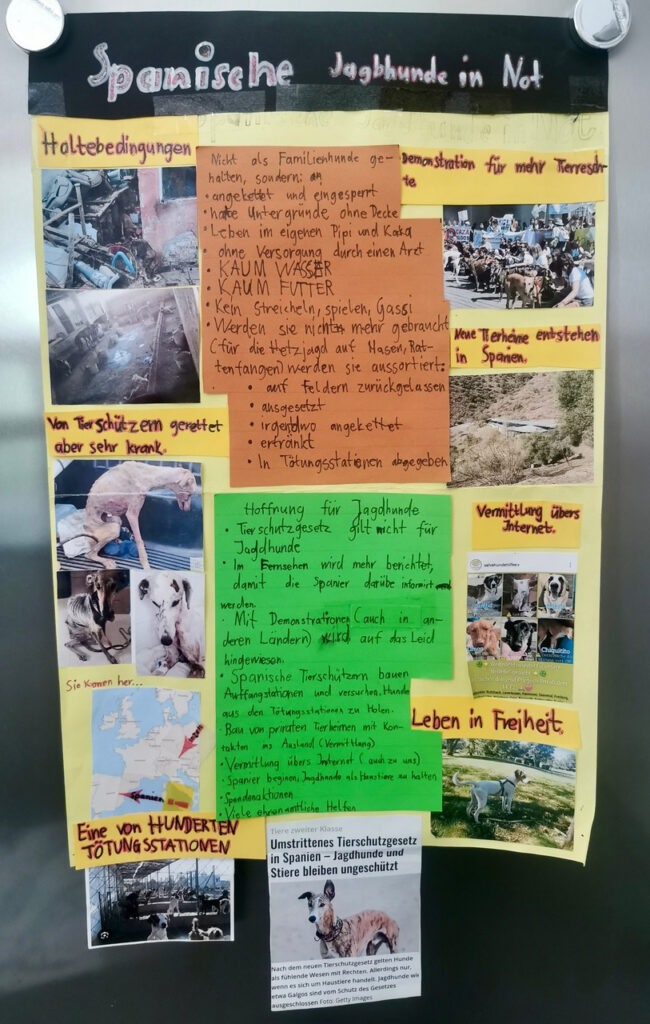 Spanische Jagbhunde in Not
Haltebedingungen
Nicht als Familienhunde ge-
halten, sondern: an
• angekettet und eingesperrt
• harte Untergründe ohne Decke
• Leben im eigenen Pipi und Kaka
• ohne Versorgung durch einen Arzt
• KAUM WASSER
• KAUM FUTTER
• Kein Streicheln, spielen, Gassi
• Werden sie nicht mehr gebraucht
(für die Hetzjagd auf Hasen, Rat-
tenfangen) werden sie aussortiert:
• auf Feldern zurückgelassen
• ausgesetzt
• irgendwo angekettet
• ertränkt
• In Tötungsstationen abgegeben
Demonstration für mehr Tierrech
te
Neue Tierheime entstehen
in Spanien.
Von Tierschützern gerettet
aber sehr krank.
Hoffnung für Jagdhunde
• Tierschutzgesetz gilt nicht für
Jagdhunde
• Im Fernsehen wird mehr berichtet,
damit die Spanier darübe informiert
werden.
• Mit Demonstrationen (auch in an-
deren Ländern) wird auf das Leid
hingewiesen.
• Spanische Tierschützern bauen
Auffangstationen und versuchen, Hunde
aus den Tötungsstationen zu holen.
• Bau von privaten Tierheimen mit Kon-
takten ins Ausland (Vermittlung)
• Vermittlung übers Internet (auch zu uns)
• Spanier beginnen, Jagdhunde als Haustiere zu halten
• Spendenaktionen
• Viele ehrenamtliche Helfen
Vermittlung übers
Internet.
Chiquitito
Sie kamen her...
Spanien
Leben in Freiheit.
Eine von HUNDERTEN
TÖTUNGSSTATIONEN
Tiere zweiter Klasse
Umstrittenes Tierschutzgesetz
in Spanien – Jagdhunde und
Stiere bleiben ungeschützt
Nach dem neuen Tierschutzgesetz gelten Hunde
als fühlende Wesen mit Rechten. Allerdings nur,
wenn es sich um Haustiere handelt. Jagdhunde wie
etwa Galgos sind vom Schutz des Gesetzes
ausgeschlossen Foto: Getty Images